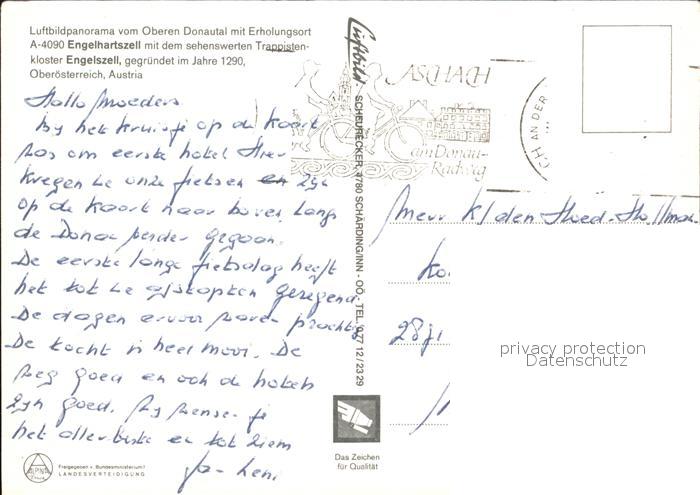 Luftbildpanorama vom Oberen Donautal mit Erholungsort
A-4090 Engelhartszell mit dem sehenswerten Trappisten-
kloster Engelszell, gegründet im Jahre 1290,
Oberösterreich, Austria
Hallo Moeders
By het kruisje op de kaart
was ons eerste hotel Hier
kregen we onze fietsen en zyn
op de kaart naar boven langs
de Donau verder gegaan.
De eerste lange fietsdag heeft
het tot we afstapten geregend
De dagen ervoor waren prachtig
De tocht is heel mooi. De
weg goed en ook de hotels
zyn goed. Wy wensen je
het allerbeste en tot ziens
Ja- Leni
Freigegeben v. Bundesministerium f.
LANDESVERTEIDIGUNG
ALPINA
Luftbild
SCHEURECKER, 4780 SCHÄRDING/INN - OÖ. - TEL. 0 77 12 / 23 29
ASCHACH
am Donau-
Radweg
CH AN DER
Mevr K/den Hoed-Hollman
Ko
28
privacy protection
Datenschutz
Das Zeichen
für Qualität